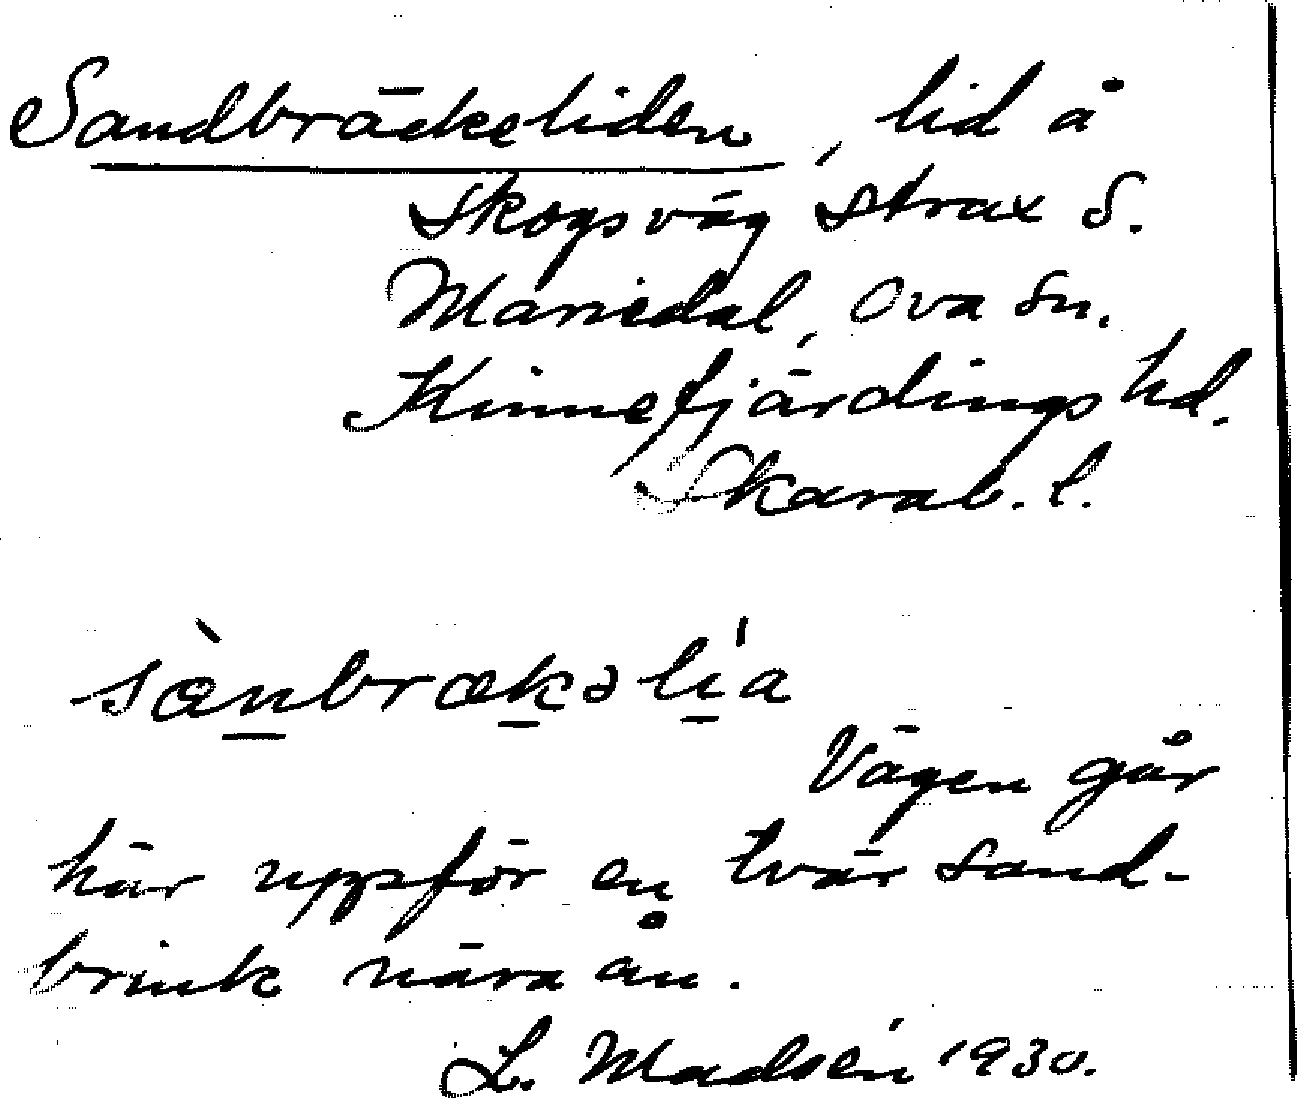 Sandbräckeliden, lid å
skogsväg strax S.
Mariedal, Ova sn.
Kinnefjärdings hd.
Skarab. l.
sànbrækəlía
Vägen går
här uppför en tvär sand-
brink nära ån.
L. Madsén 1930.